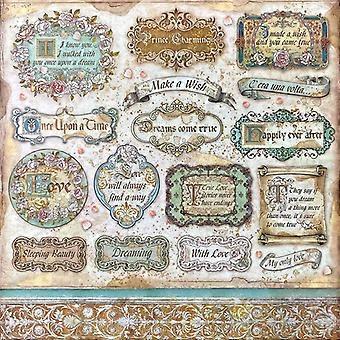 I know you,
I walked with
you once upon a dream
Prince Charming
I made a wish
and you came true
Make a Wish
C'era una volta...
Once Upon a Time
Dreams come true
Happily ever after
Love
Love
will always
find a way
True Love
stories never
have endings
They say if
you dream
a thing more
than once, it's sure
to come true
Sleeping Beauty
Dreaming
With Love
My only love